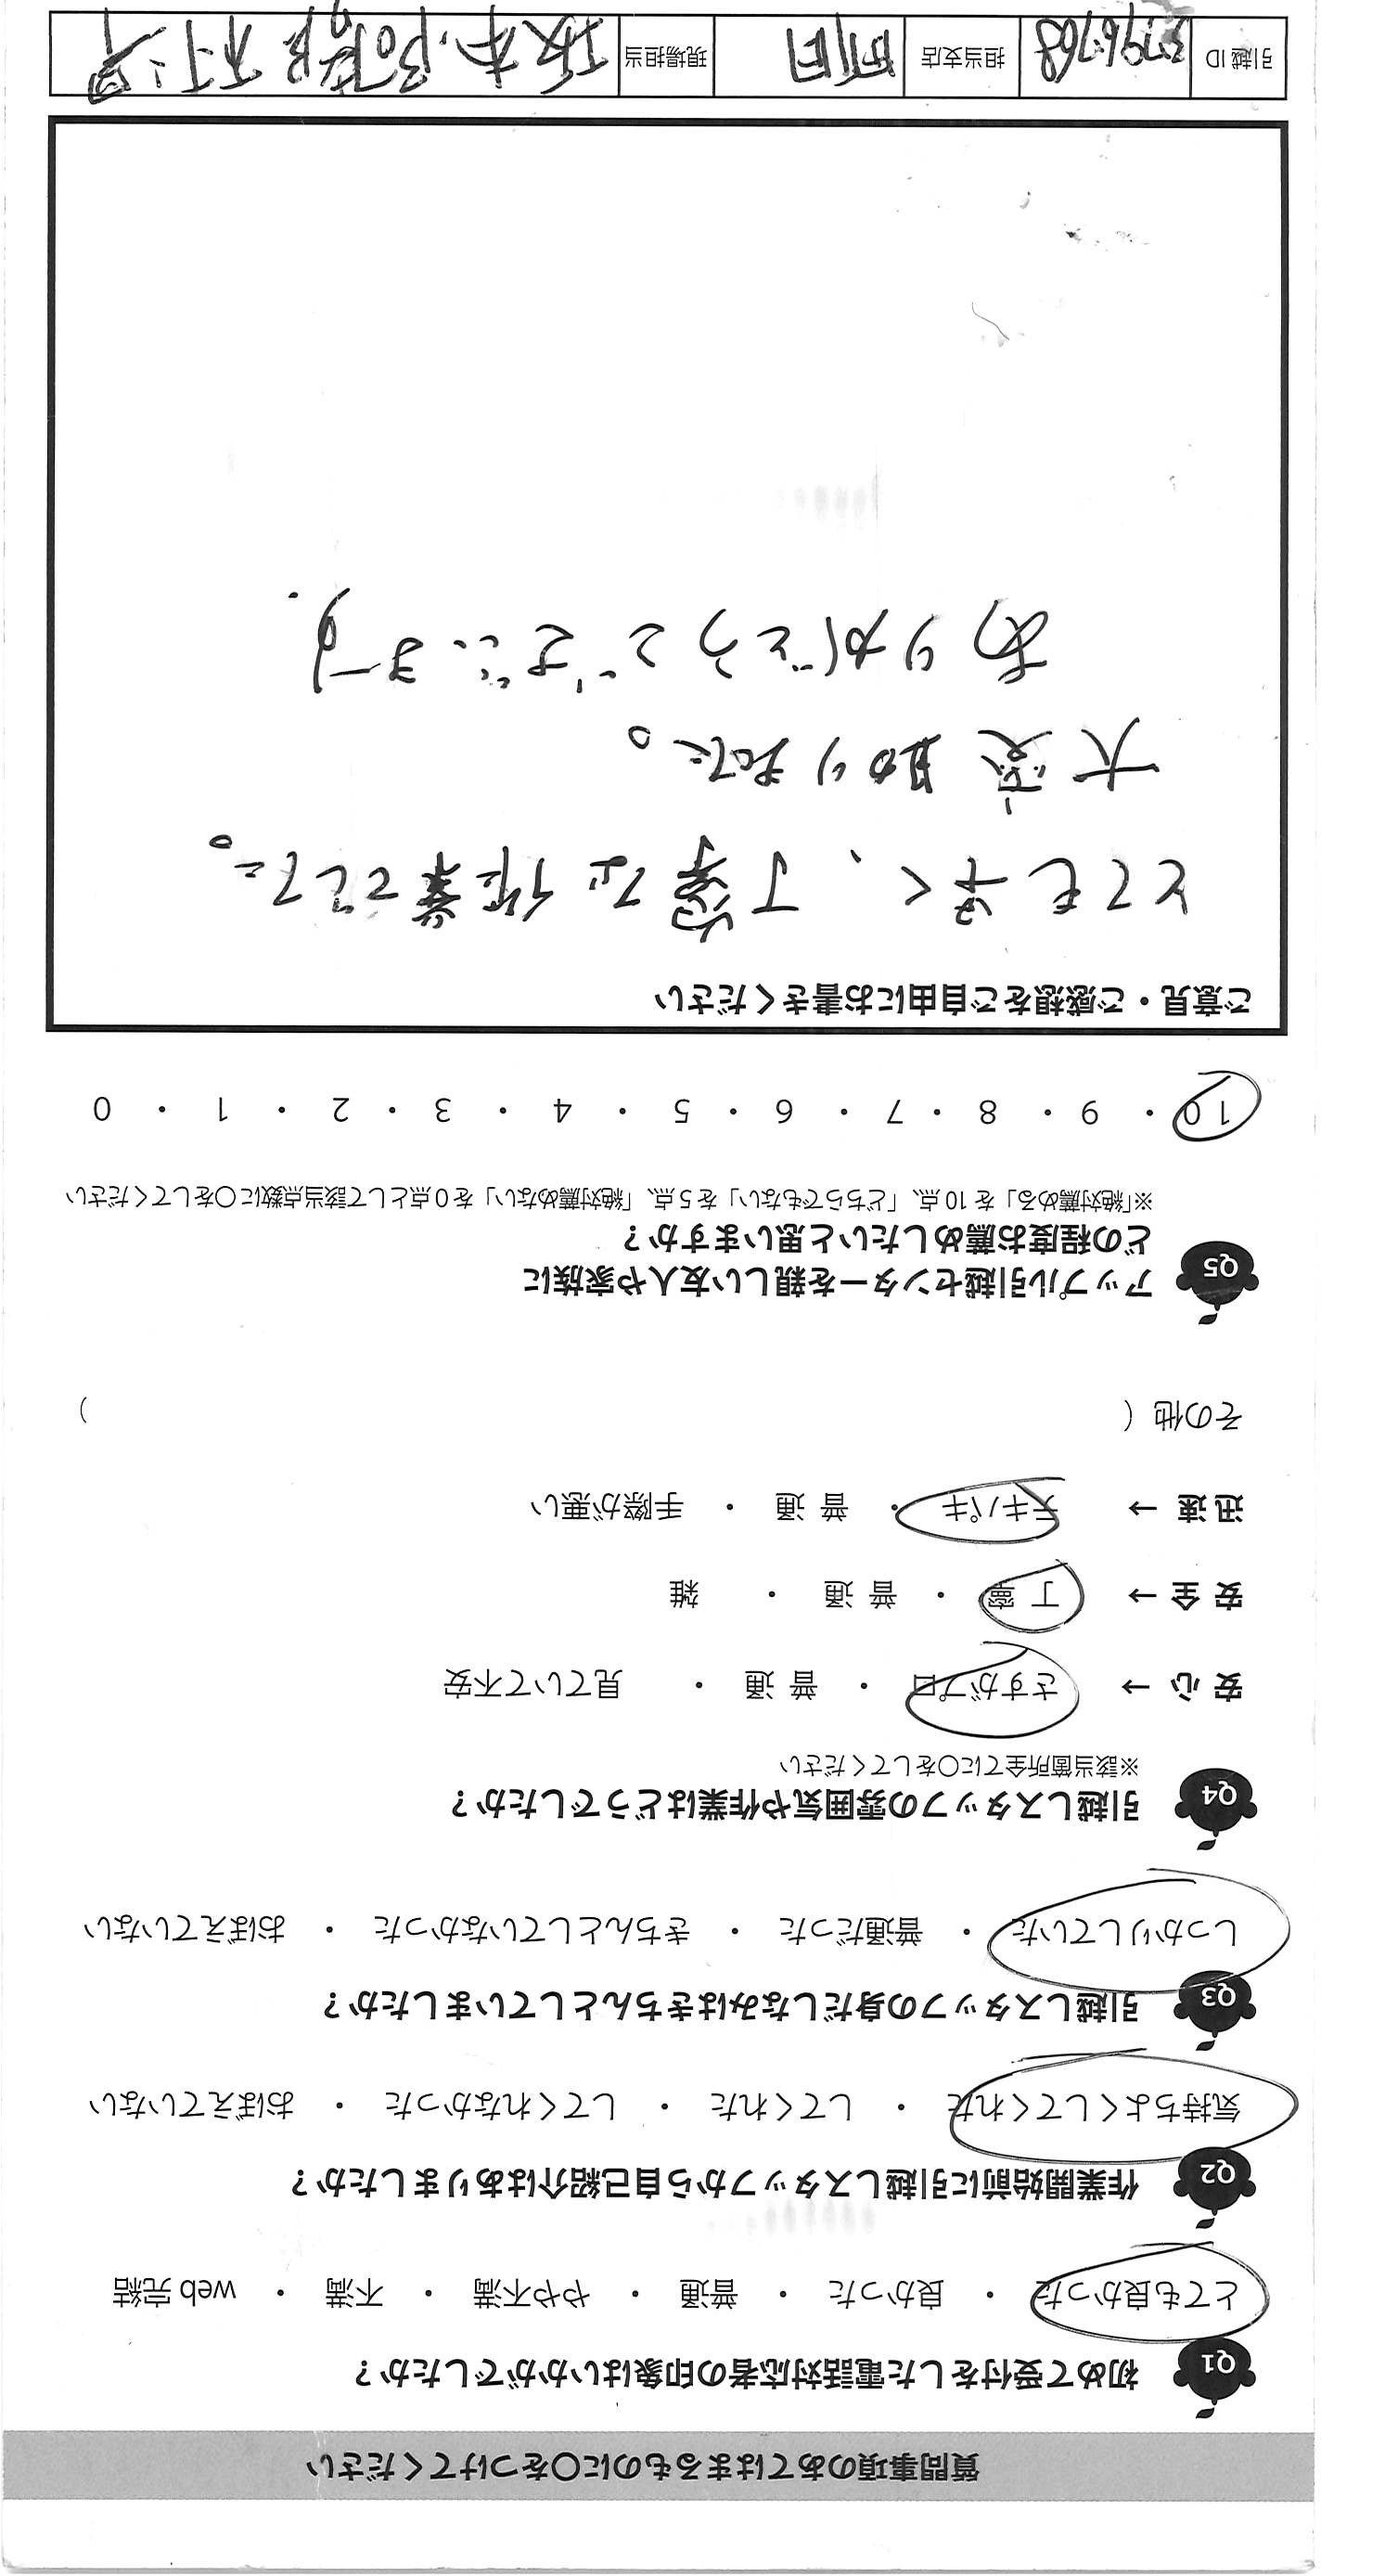 質問事項のあてはまるものに○をつけてください
Q1 初めて受付をした電話対応者の印象はいかがでしたか？
とても良かった ・ 良かった ・ 普通 ・ やや不満 ・ 不満 ・ web 完結
Q2 作業開始前に引越しスタッフから自己紹介はありましたか？
気持ちよくしてくれた ・ してくれた ・ してくれなかった ・ おぼえていない
Q3 引越しスタッフの身だしなみはきちんとしていましたか？
しっかりしていた ・ 普通だった ・ きちんとしていなかった ・ おぼえていない
Q4 引越しスタッフの雰囲気や作業はどうでしたか？
※該当箇所全てに○をしてください
安 心 → さすがプロ ・ 普 通 ・ 見ていて不安
安 全 → 丁 寧 ・ 普 通 ・ 雑
迅 速 → テキパキ ・ 普 通 ・ 手際が悪い
その他（ ）
Q5 アップル引越センターを親しい友人や家族に
どの程度お薦めしたいと思いますか？
※「絶対薦める」を 10 点、「どちらでもない」を 5 点、「絶対薦めない」を 0 点として該当点数に○をしてください
10 ・ 9 ・ 8 ・ 7 ・ 6 ・ 5 ・ 4 ・ 3 ・ 2 ・ 1 ・ 0
ご意見・ご感想をご自由にお書きください
とても早く、丁寧な作業でした。
大変助かりました。
ありがとうございます.
引越 ID 担当支店 現場担当 坂本,